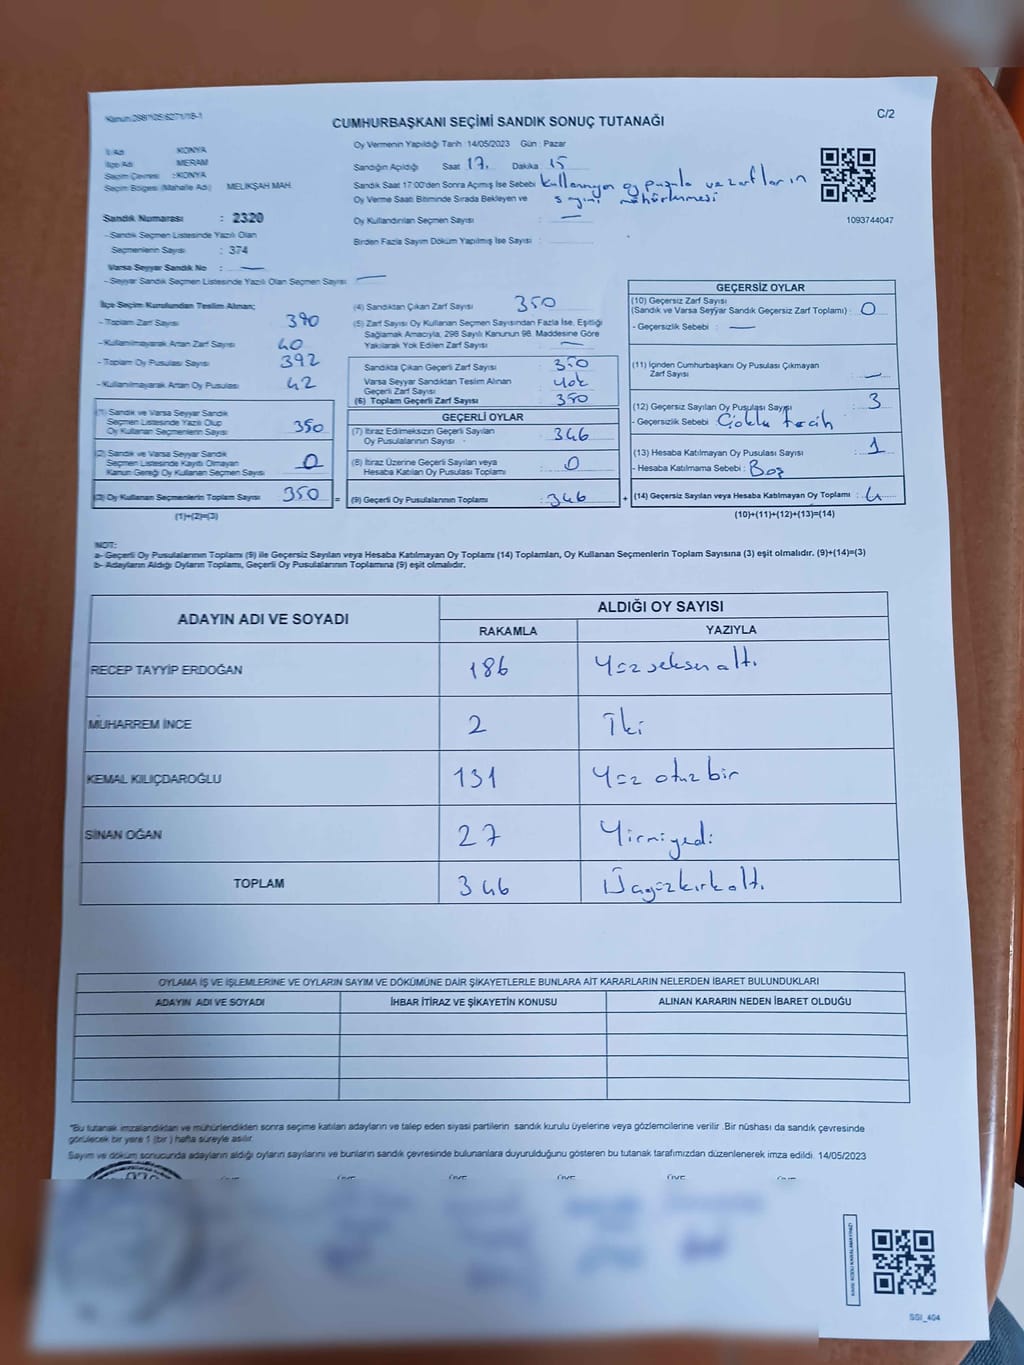 Kanun:298/105/6271/18-1
C/2
CUMHURBAŞKANI SEÇİMİ SANDIK SONUÇ TUTANAĞI
İl Adı : KONYA
İlçe Adı : MERAM
Seçim Çevresi : KONYA
Seçim Bölgesi (Mahalle Adı) : MELİKŞAH MAH.
Sandık Numarası : 2320
- Sandık Seçmen Listesinde Yazılı Olan
Seçmenlerin Sayısı : 374
Varsa Seyyar Sandık No : —
- Seyyar Sandık Seçmen Listesinde Yazılı Olan Seçmen Sayısı : —
Oy Vermenin Yapıldığı Tarih 14/05/2023 Gün : Pazar
Sandığın Açıldığı Saat 17. Dakika 15
Sandık Saat 17:00'den Sonra Açılmış İse Sebebi kullanmayan oy pusula ve zarfların
Oy Verme Saati Bitiminde Sırada Bekleyen ve sayını mühürlenmesi
Oy Kullandırılan Seçmen Sayısı : —
Birden Fazla Sayım Döküm Yapılmış İse Sayısı :
1093744047
İlçe Seçim Kurulundan Teslim Alınan;
- Toplam Zarf Sayısı 390
- Kullanılmayarak Artan Zarf Sayısı 40
- Toplam Oy Pusulası Sayısı 392
- Kullanılmayarak Artan Oy Pusulası 42
(1) Sandık ve Varsa Seyyar Sandık
Seçmen Listesinde Yazılı Olup
Oy Kullanan Seçmenlerin Sayısı 350
(2) Sandık ve Varsa Seyyar Sandık
Seçmen Listesinde Kayıtlı Olmayan
Kanun Gereği Oy Kullanan Seçmen Sayısı 0
(3) Oy Kullanan Seçmenlerin Toplam Sayısı 350 =
(1)+(2)=(3)
(4) Sandıktan Çıkan Zarf Sayısı 350
(5) Zarf Sayısı Oy Kullanan Seçmen Sayısından Fazla İse, Eşitliği
Sağlamak Amacıyla, 298 Sayılı Kanunun 98. Maddesine Göre
Yakılarak Yok Edilen Zarf Sayısı : —
Sandıkta Çıkan Geçerli Zarf Sayısı : 350
Varsa Seyyar Sandıktan Teslim Alınan
Geçerli Zarf Sayısı : Yok
(6) Toplam Geçerli Zarf Sayısı : 350
GEÇERLİ OYLAR
(7) İtiraz Edilmeksizin Geçerli Sayılan
Oy Pusulalarının Sayısı : 346
(8) İtiraz Üzerine Geçerli Sayılan veya
Hesaba Katılan Oy Pusulası Toplamı : 0
(9) Geçerli Oy Pusulalarının Toplamı : 346 +
GEÇERSİZ OYLAR
(10) Geçersiz Zarf Sayısı
(Sandık ve Varsa Seyyar Sandık Geçersiz Zarf Toplamı) : 0
- Geçersizlik Sebebi : —
(11) İçinden Cumhurbaşkanı Oy Pusulası Çıkmayan
Zarf Sayısı : —
(12) Geçersiz Sayılan Oy Pusulası Sayısı : 3
- Geçersizlik Sebebi : Çoklu tercih
(13) Hesaba Katılmayan Oy Pusulası Sayısı : 1
- Hesaba Katılmama Sebebi : Boş
(14) Geçersiz Sayılan veya Hesaba Katılmayan Oy Toplamı : 4
(10)+(11)+(12)+(13)=(14)
NOT:
a- Geçerli Oy Pusulalarının Toplamı (9) ile Geçersiz Sayılan veya Hesaba Katılmayan Oy Toplamı (14) Toplamları, Oy Kullanan Seçmenlerin Toplam Sayısına (3) eşit olmalıdır. (9)+(14)=(3)
b- Adayların Aldığı Oyların Toplamı, Geçerli Oy Pusulalarının Toplamına (9) eşit olmalıdır.
ADAYIN ADI VE SOYADI ALDIĞI OY SAYISI
RAKAMLA YAZIYLA
RECEP TAYYİP ERDOĞAN 186 Yüz seksen altı
MUHARREM İNCE 2 İki
KEMAL KILIÇDAROĞLU 131 Yüz otuz bir
SİNAN OĞAN 27 Yirmiyedi
TOPLAM 346 Üçyüzkırkaltı
OYLAMA İŞ VE İŞLEMLERİNE VE OYLARIN SAYIM VE DÖKÜMÜNE DAİR ŞİKAYETLERLE BUNLARA AİT KARARLARIN NELERDEN İBARET BULUNDUKLARI
ADAYIN ADI VE SOYADI İHBAR İTİRAZ VE ŞİKAYETİN KONUSU ALINAN KARARIN NEDEN İBARET OLDUĞU
"Bu tutanak imzalandıktan ve mühürlendikten sonra seçime katılan adayların ve talep eden siyasi partilerin sandık kurulu üyelerine veya gözlemcilerine verilir .Bir nüshası da sandık çevresinde
görülecek bir yere 1 (bir ) hafta süreyle asılır.
Sayım ve döküm sonucunda adayların aldığı oyların sayılarını ve bunların sandık çevresinde bulunanlara duyurulduğunu gösteren bu tutanak tarafımızdan düzenlenerek imza edildi. 14/05/2023
SSI_404